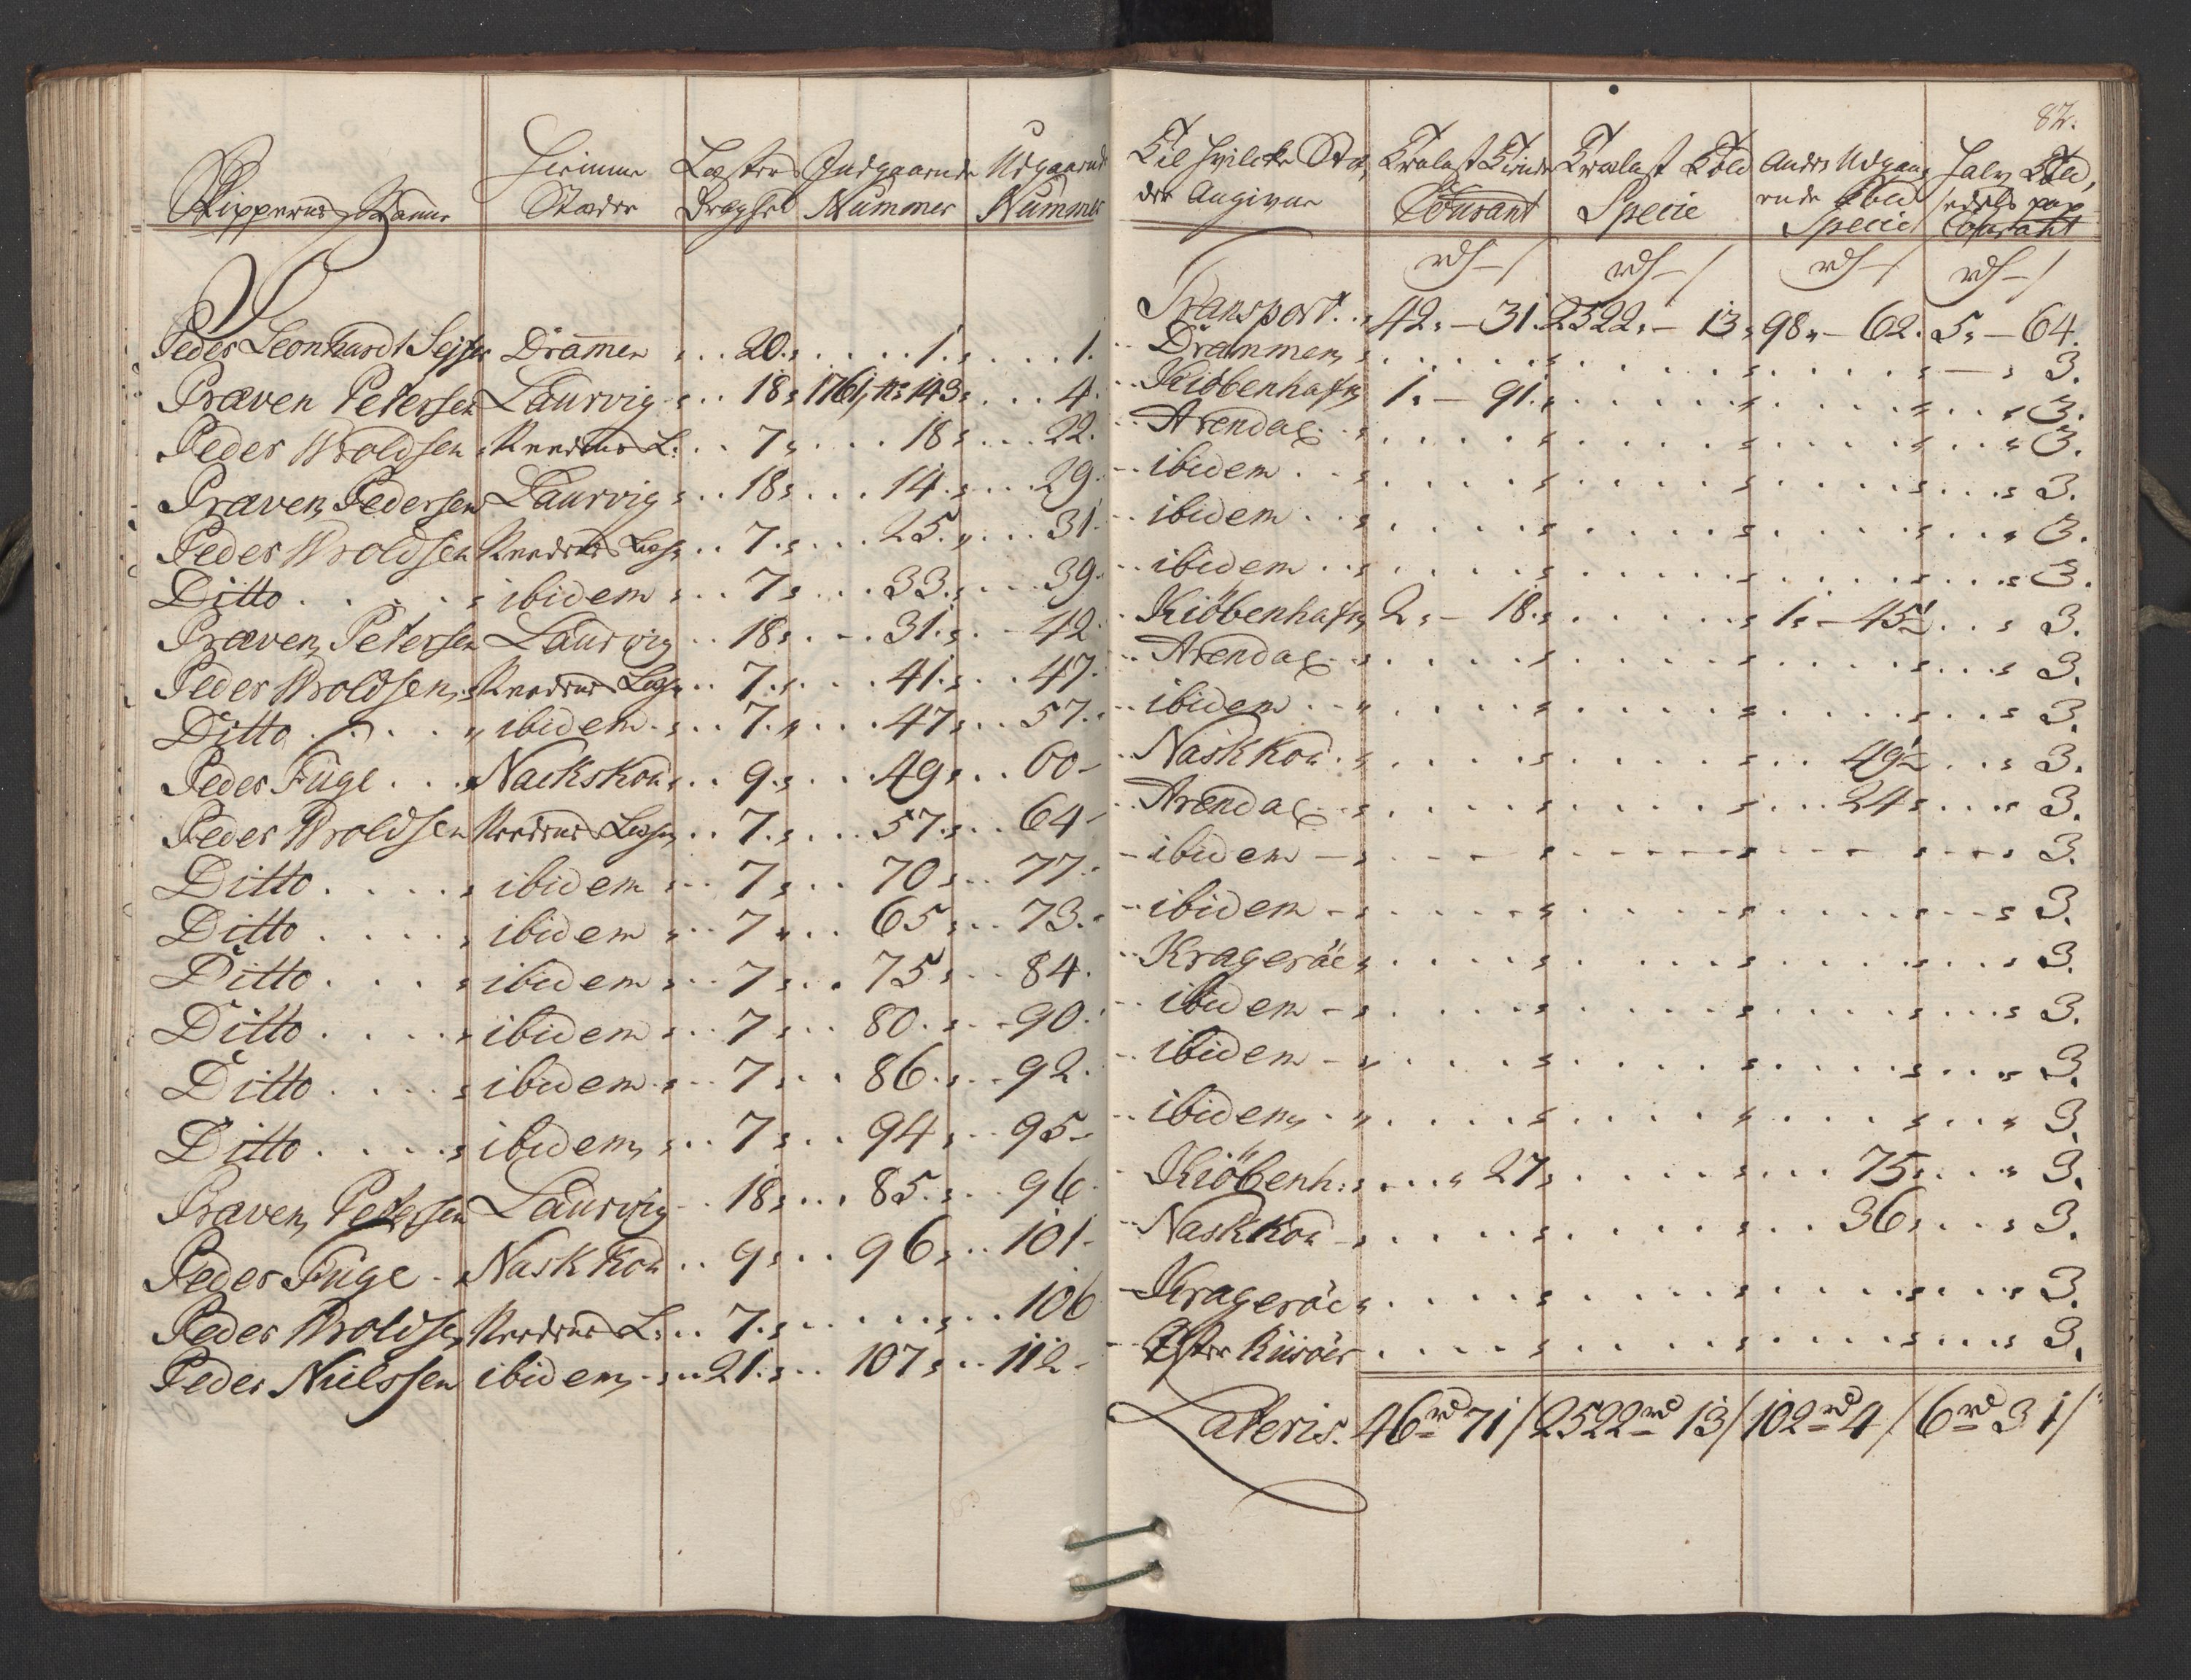 Skippernes Nafne
Heimme Stæder
Læsters Drægtsel
Indgaaende Nummer
Udgaaende Nummer
P
Peder Leonhardt Sejser Dramen 20. 1. 1.
Præven Petersen Laurvig 18 1761, No 143 4.
Peder Wroldsen L: 7 18 22.
Præven Pedersen Laurvig 18 14. 29.
Peder Wroldsen 7. 25. 31.
Ditto ibidem 7 33. 39.
Præven Petersen Laurvig 18 31. 42
Peder Wroldsen 7. 41. 47.
Ditto ibidem 7. 47 57.
Peder Fuge Nackskou 9. 49 60
Peder Wroldsen 7. 57. 64
Ditto ibidem 7 70 77.
Ditto ibidem 7 65 73.
Ditto ibidem 7 75 84.
Ditto ibidem 7 80. 90.
Ditto ibidem 7 86. 92.
Ditto ibidem 7 94 95
Præven Petersen Laurvig 18 85. 96
Peder Fuge Naskkou 9 96 101
Peder Wroldsen L: 7. 106
Peder Nielssen ibidem 21. 107 112
82.
Til hvilcke Stæder Angivne
Trælast Tiende Courant
Trælast Told Specie
Andre Udgaaende Told Specie
Courant
rd ſ rd ſ rd ſ rd ſ
Transport 42 31. 2522 13 98 62. 5 64.
Drammen 3.
Kiöbenhafn 1. 91. 3.
Arendal 3.
ibidem 3.
ibidem 3.
ibidem 3.
Kiöbenhafn 2 18. 1. 45½ 3.
Arendal 3.
ibidem 3.
Naskkou 49½ 3.
Arendal 24 3.
ibidem 3.
ibidem 3.
Krageröe 3.
ibidem 3.
ibidem 3.
ibidem 3.
Kiöbenh: 27 75 3.
Naskkou 36 3.
Krageröe 3.
Öster Riisöer 3.
Lateris. 46 rd 71 ſ 2522 rd 13 ſ 102 rd 4 ſ 6 rd 31 ſ